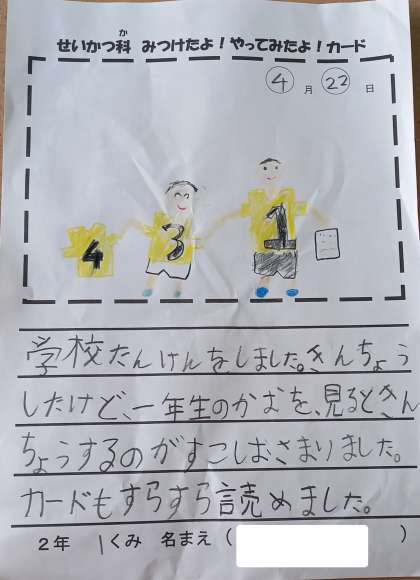 か
せいかつ科 みつけたよ！やってみたよ！カード
4月22日
4 3 1
学校たんけんをしました。きんちょう
したけど、一年生のかおを、見るときん
ちょうするのがすこしおさまりました。
カードもすらすら読めました。
2年 1くみ 名まえ（ ）